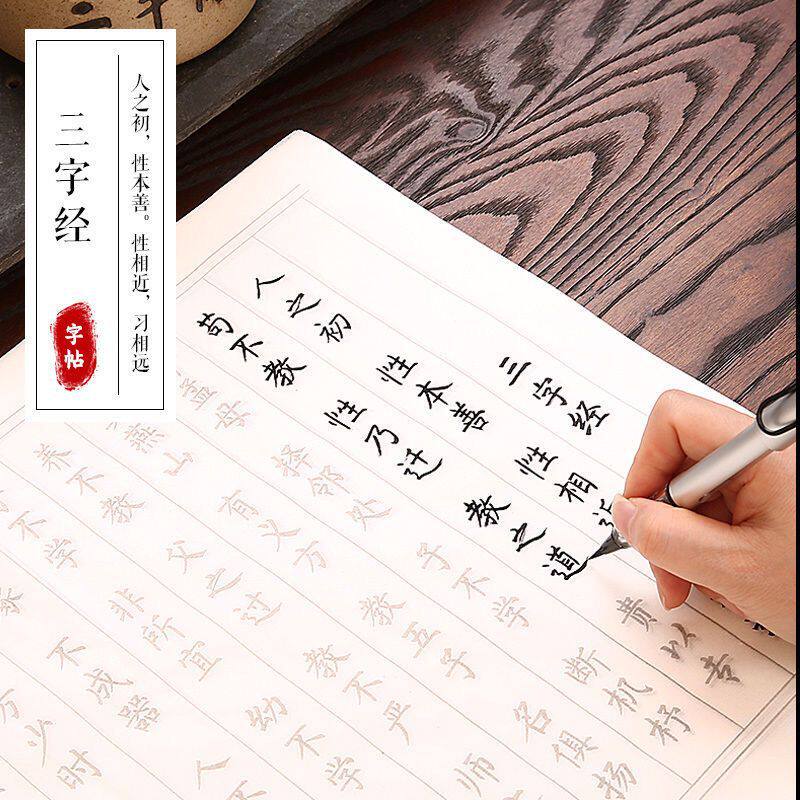 三字经
人之初，性本善。性相近，习相远
字帖
三字经
人之初 性本善 性相近
苟不教 性乃迁 教之道 贵以专
孟母 择邻处 子不学 断机杼
燕山 有义方 教五子 名俱扬
养不教 父之过 教不严 师
不学 非所宜 幼不学
不成器 人不
方少时